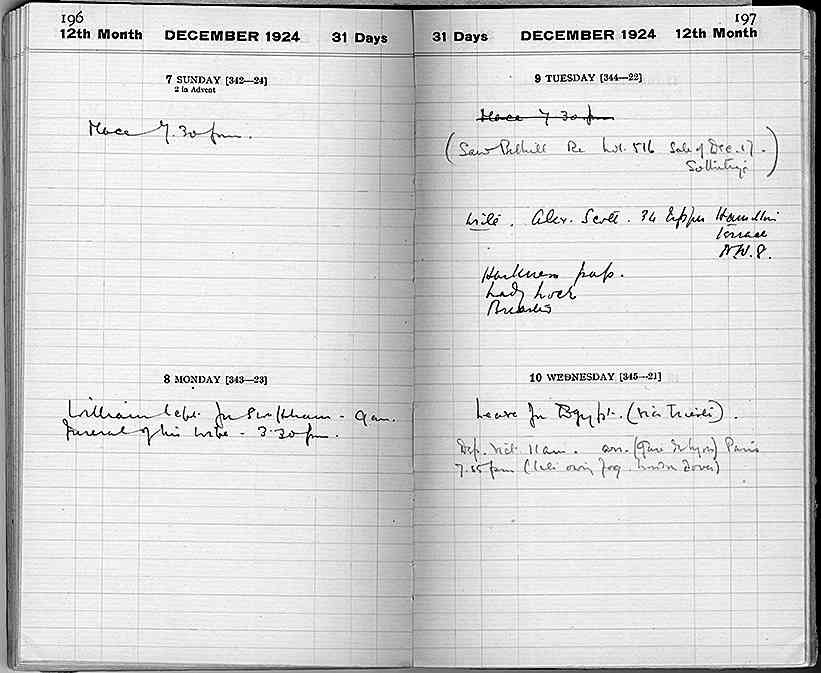 196
12th Month DECEMBER 1924 31 Days
7 SUNDAY [342—24]
2 in Advent
Mace 7.30 pm.
8 MONDAY [343—23]
William left for Swaffham - 9 am.
Funeral of his wife - 3.30 pm.
197
31 Days DECEMBER 1924 12th Month
9 TUESDAY [344—22]
Mace 7 30 pm
(Saw Re Lot. 516 Sale of Dec. 17.
Sotheby's)
Write. Alex. Scott. 34 Upper Hamilton
Terrace
N.W. 8.
Harkness
Lady
10 WEDNESDAY [345—21]
Leave for Egypt. (via Trieste).
Dep. Vict. 11 am. arr. (Gare de Lyon) Paris
7.55 pm (late owing fog Dover)